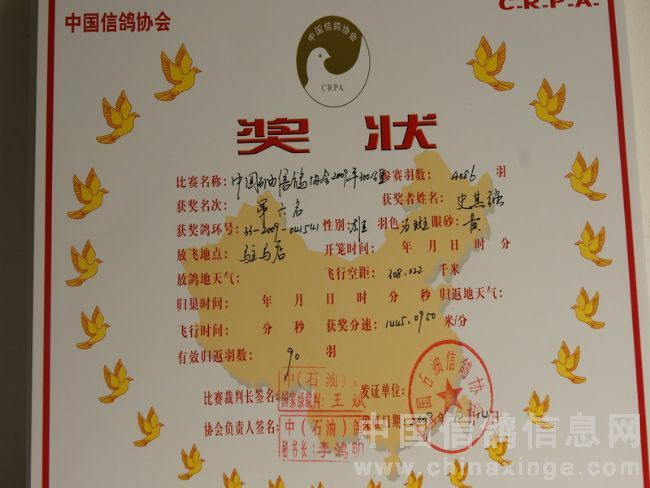 中国信鸽协会
C-R-P-A-
中国信鸽协会
CRPA
奖状
比赛名称: 中国石油信鸽协会2009年300公里 参赛羽数: 4086 羽
获奖名次: 第六名 获奖者姓名: 史其强
获奖鸽环号: 33-2009-041541 性别: 雄 羽色: 雨斑 眼砂: 黄
放飞地点: 驻马店 开笼时间: 年 月 日 时 分
放鸽地天气: 飞行空距: 308.022 千米
归巢时间: 年 月 日 时 分 秒 归返地天气:
飞行时间: 分 秒 获奖分速: 1445.0950 米/分
有效归返羽数: 90 羽
比赛裁判长签名: 中(石油) 国家级裁判: 王斌 发证单位:
协会负责人签名: 中(石油) 秘书长: 李鸿明 发证日期: 2009年12月
石油信鸽协
中国信鸽信息网
www.chinaxinge.com